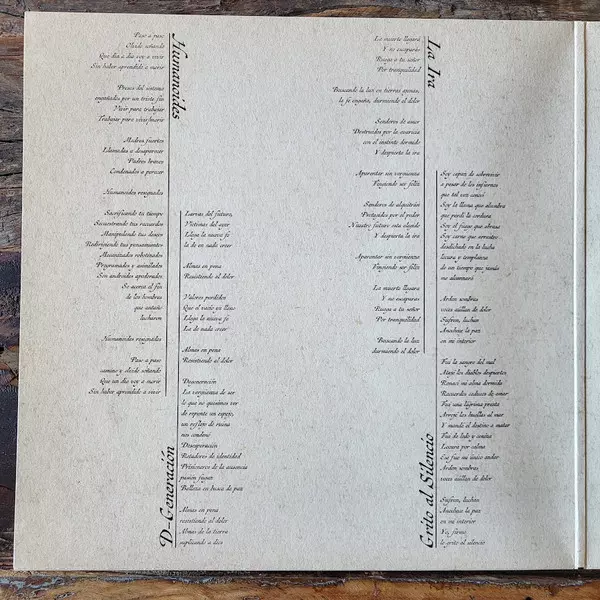 Humanoides
Paso a paso
Olvide soñando
Que dia a dia voy a vivir
Sin haber aprendido a morir
Presos del sistema
engañados por un triste fin
Vivir para trabajar
Trabajar para sobrevivir
Madres fuertes
Llamadas a desaparecer
Padres bravos
Condenados a perecer
Humanoides resignados
Sacrificando tu tiempo
Secuestrando tus recuerdos
Manipulando tus deseos
Redirigiendo tus pensamientos
Mecanizados robotizados
Programados y asimilados
Son androides apoderados
Se acerca el fin
de los hombres
que antaño
lucharon
Humanoides resignados
Paso a paso
camino y olvide soñando
Que un dia voy a morir
Sin haber aprendido a vivir
D-Generación
Larvas del futuro,
Victimas del ayer
Llega la nueva fé
la de en nada creer
Almas en pena
Resistiendo al dolor
Valores perdidos
Que el vacío se llevo
Llega la nueva fé
La de nada creer
Almas en pena
Resistiendo al dolor
Degeneración
La vergüenza de ser
lo que no quisimos ver
de repente un espejo,
un reflejo de ruina
nos condenó
Desesperación
Robadores de identidad
Prisioneros de la ausencia
pasión fugaz
Belleza en busca de paz
Almas en pena
resistiendo al dolor
Almas de la tierra
suplicando a dios
La Ira
La muerte llegará
Y no escaparás
Ruega a tu señor
Por tranquilidad
Buscando la luz en tierras ajenas,
la fe engaña, durmiendo el dolor
Senderos de amor
Destruidos por la avaricia
con el instinto dormido
Y despierta la ira
Aparentar sin vergüenza
Fingiendo ser feliz
Senderos de alquitrán
Protegidos por el poder
Nuestro futuro esta elegido
Y despierta la ira
Aparentar sin vergüenza
Fingiendo ser feliz
La muerte llegará
Y no escaparás
Ruega a tu señor
Por tranquilidad
Buscando la luz
durmiendo el dolor
Grito al Silencio
Soy capaz de sobrevivir
a pesar de los infiernos
que tal vez causé
Soy la llama que alumbra
que perdí la cordura
Soy el fuego que abrasa
Soy carne que arrastra
desdichado en la lucha
locura y templanza
de un tiempo que jamás
me alumbrará
Arden sombras
voces aúllan de dolor
Sufren, luchan
Anochece la paz
en mi interior
Fui la sangre del mal
Atajé los diablos despiertos
Renací mi alma dormida
Recuerdos
Fui una lágrima presta
Arrojé las huellas al mar
Y mandé el destino a matar
Fui de lodo y ceniza
Locura por calma
Ese fue mi único andar
Arden sombras
voces aúllan de dolor
Sufren, luchan
Anochece la paz
en mi interior
Yo, firme
le grito al silencio